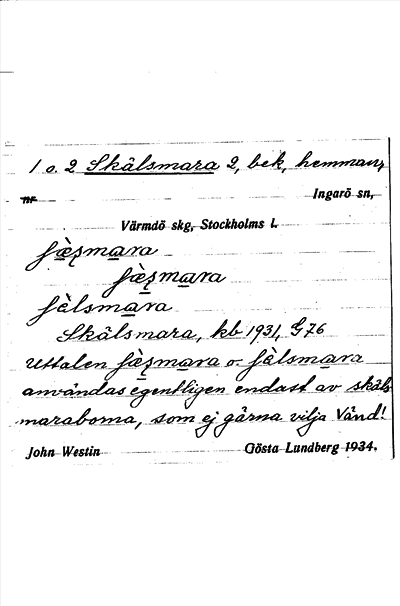 1 o. 2 Skälsmara 2, bek, hemman,
nr Ingarö sn,
Värmdö skg, Stockholms l.
ʃæ̀ʂmara
ʃæ̀ʂmara
ʃèlsmara
Skälsmara, kb 1931, G76
Uttalen ʃæ̀ʂmara o. ʃèlsmara
användas egentligen endast av skäls
maraborna, som ej gärna vilja Vänd!
John Westin Gösta Lundberg 1934.